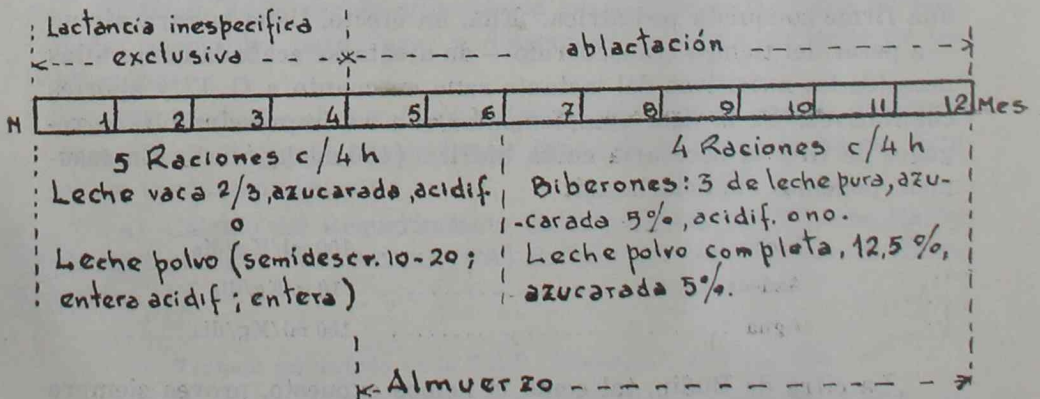 Lactancia inespecifica
exclusiva
ablactación
N 1 2 3 4 5 6 7 8 9 10 11 12 Mes
5 Raciones c/4 h
Leche vaca 2/3, azucarada, acidif.
o
Leche polvo (semidescr. 10-20;
entera acidif; entera)
4 Raciones c/4 h
Biberones: 3 de leche pura, azu-
carada 5%, acidif. o no.
Leche polvo completa, 12,5 %,
azucarada 5%.
Almuerzo